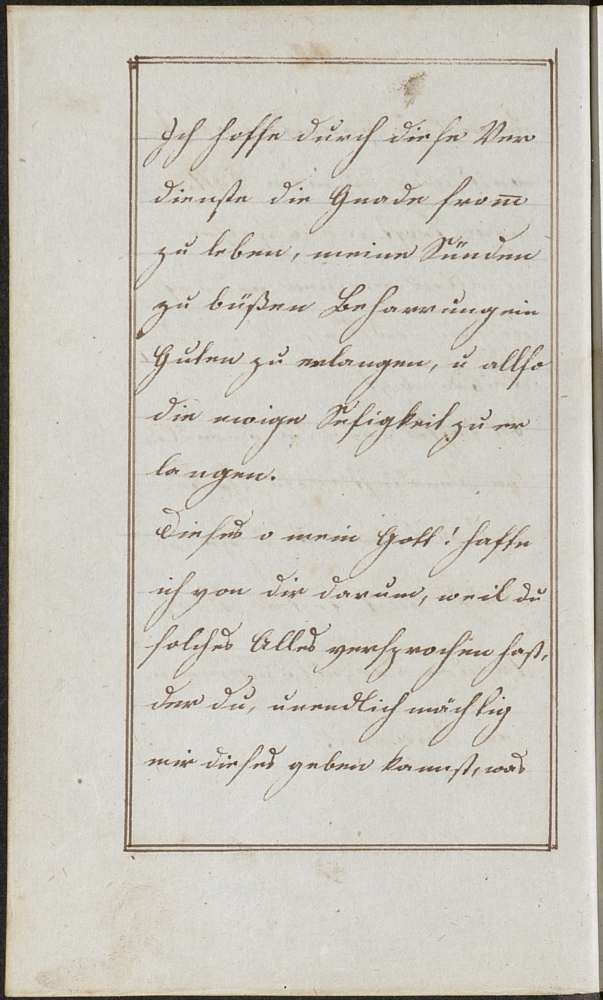 Ich hoffe durch diese Ver
dienste die Gnade from̅
zu leben, meine Sünden
zu büßen Beharrung ein
Guten zu erlangen, u allso
die ewige Sefigkeit zu er
langen.
Dieses o mein Gott! haffe
ich von dir darum, weil du
solches Alles versprochen hast,
der du, unendlich mächtig
mir dieses geben kannst, was